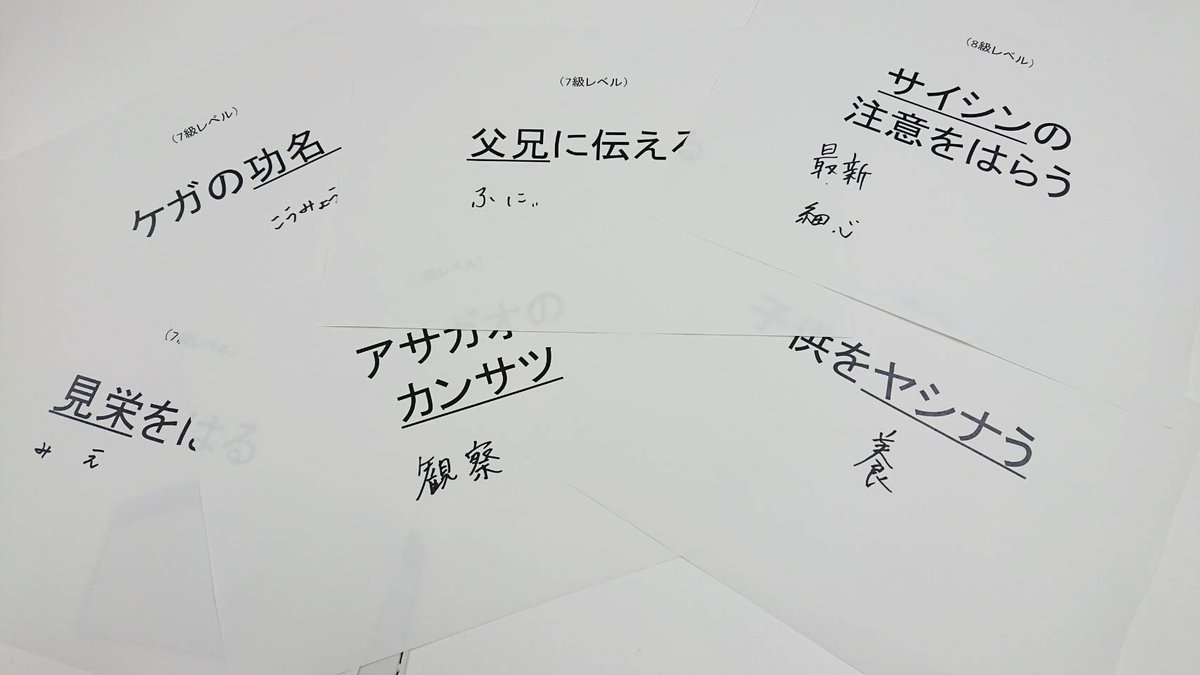 (7級レベル)
ケガの功名
こうみょう
(7級レベル)
父兄に伝え
ふに
(8級レベル)
サイシンの
注意をはらう
最新
細心
(7
見栄を
みえ
アサガオ
カンサツ
観察
供をヤシナう
養